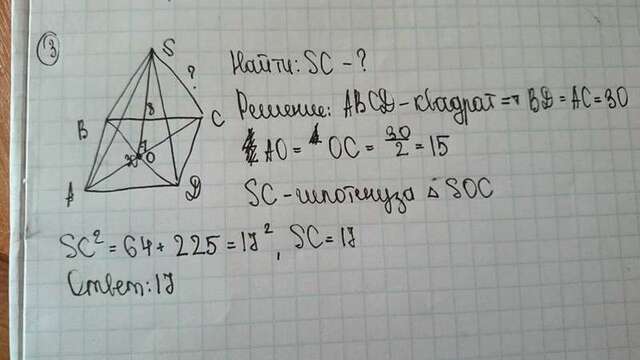 13
S
?
8
B
C
30
O
A
D
Найти: SC - ?
Решение: ABCD - квадрат => BD = AC = 30
AO = OC = 30/2 = 15
SC - гипотенуза △ SOC
SC² = 64 + 225 = 17², SC = 17
Ответ: 17